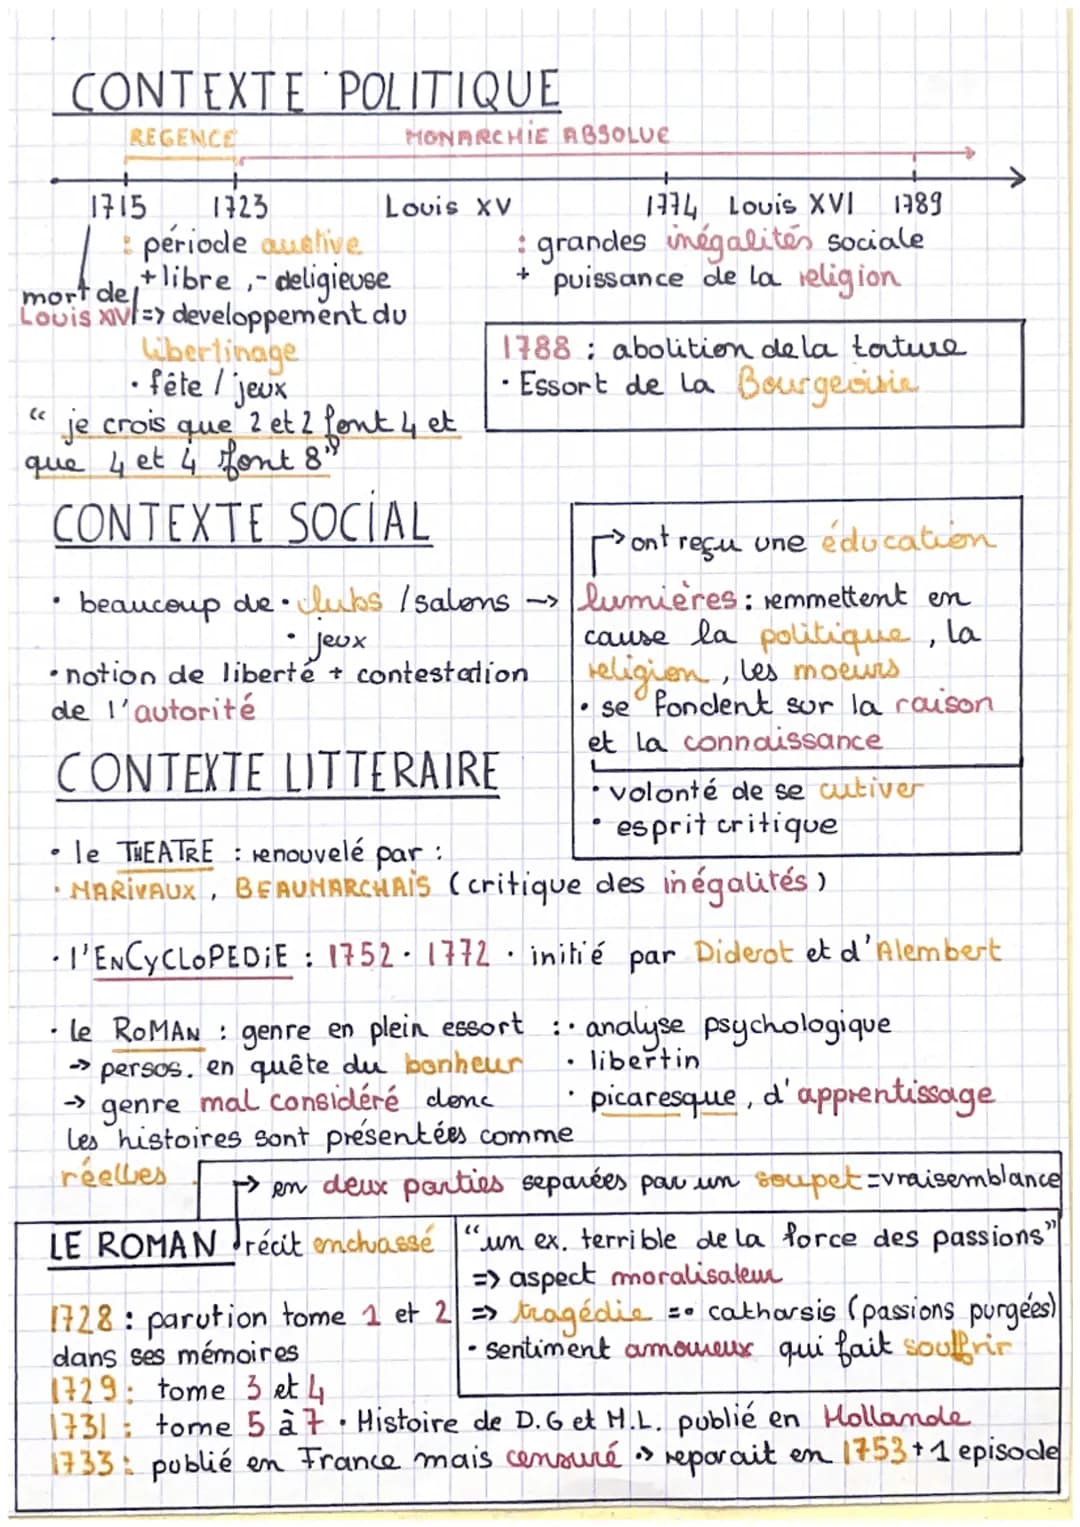 CONTEXTE POLITIQUE
REGENCE MONARCHIE ABSOLUE
1715 1723 Louis XV 1774 Louis XVI 1789
: période austive
+ libre , - deligieuse
mort de Louis XIV
=> developpement du
libertinage
• fête / jeux
: grandes inégalités sociale
+ puissance de la religion
1788 : abolition de la torture
• Essort de la Bourgeoisie
“ je crois que 2 et 2 font 4 et
que 4 et 4 font 8”
CONTEXTE SOCIAL
• beaucoup de • clubs / salons ->
• jeux
• notion de liberté + contestation
de l'autorité
-> ont reçu une éducation
lumières : remmettent en
cause la politique , la
religion , les moeurs
• se fondent sur la raison
et la connaissance
• volonté de se cutiver
• esprit critique
CONTEXTE LITTERAIRE
• le THEATRE : renouvelé par :
• MARIVAUX , BEAUMARCHAIS (critique des inégalités)
• l'ENCYCLOPEDIE : 1752 • 1772 • initié par Diderot et d'Alembert
• le ROMAN : genre en plein essort : • analyse psychologique
-> persos. en quête du bonheur • libertin
-> genre mal considéré donc • picaresque , d'apprentissage
les histoires sont présentées comme
réelles
-> en deux parties separées par un soupet = vraisemblance
LE ROMAN récit enchassé
1728 : parution tome 1 et 2
dans ses mémoires
1729 : tome 3 et 4
“un ex. terrible de la force des passions”
=> aspect moralisateur
=> tragédie => catharsis (passions purgées)
• sentiment amoureux qui fait souffrir
1731 : tome 5 à 7 • Histoire de D.G et M.L. publié en Hollande
1733 : publié en France mais censuré -> reparait en 1753 + 1 episode